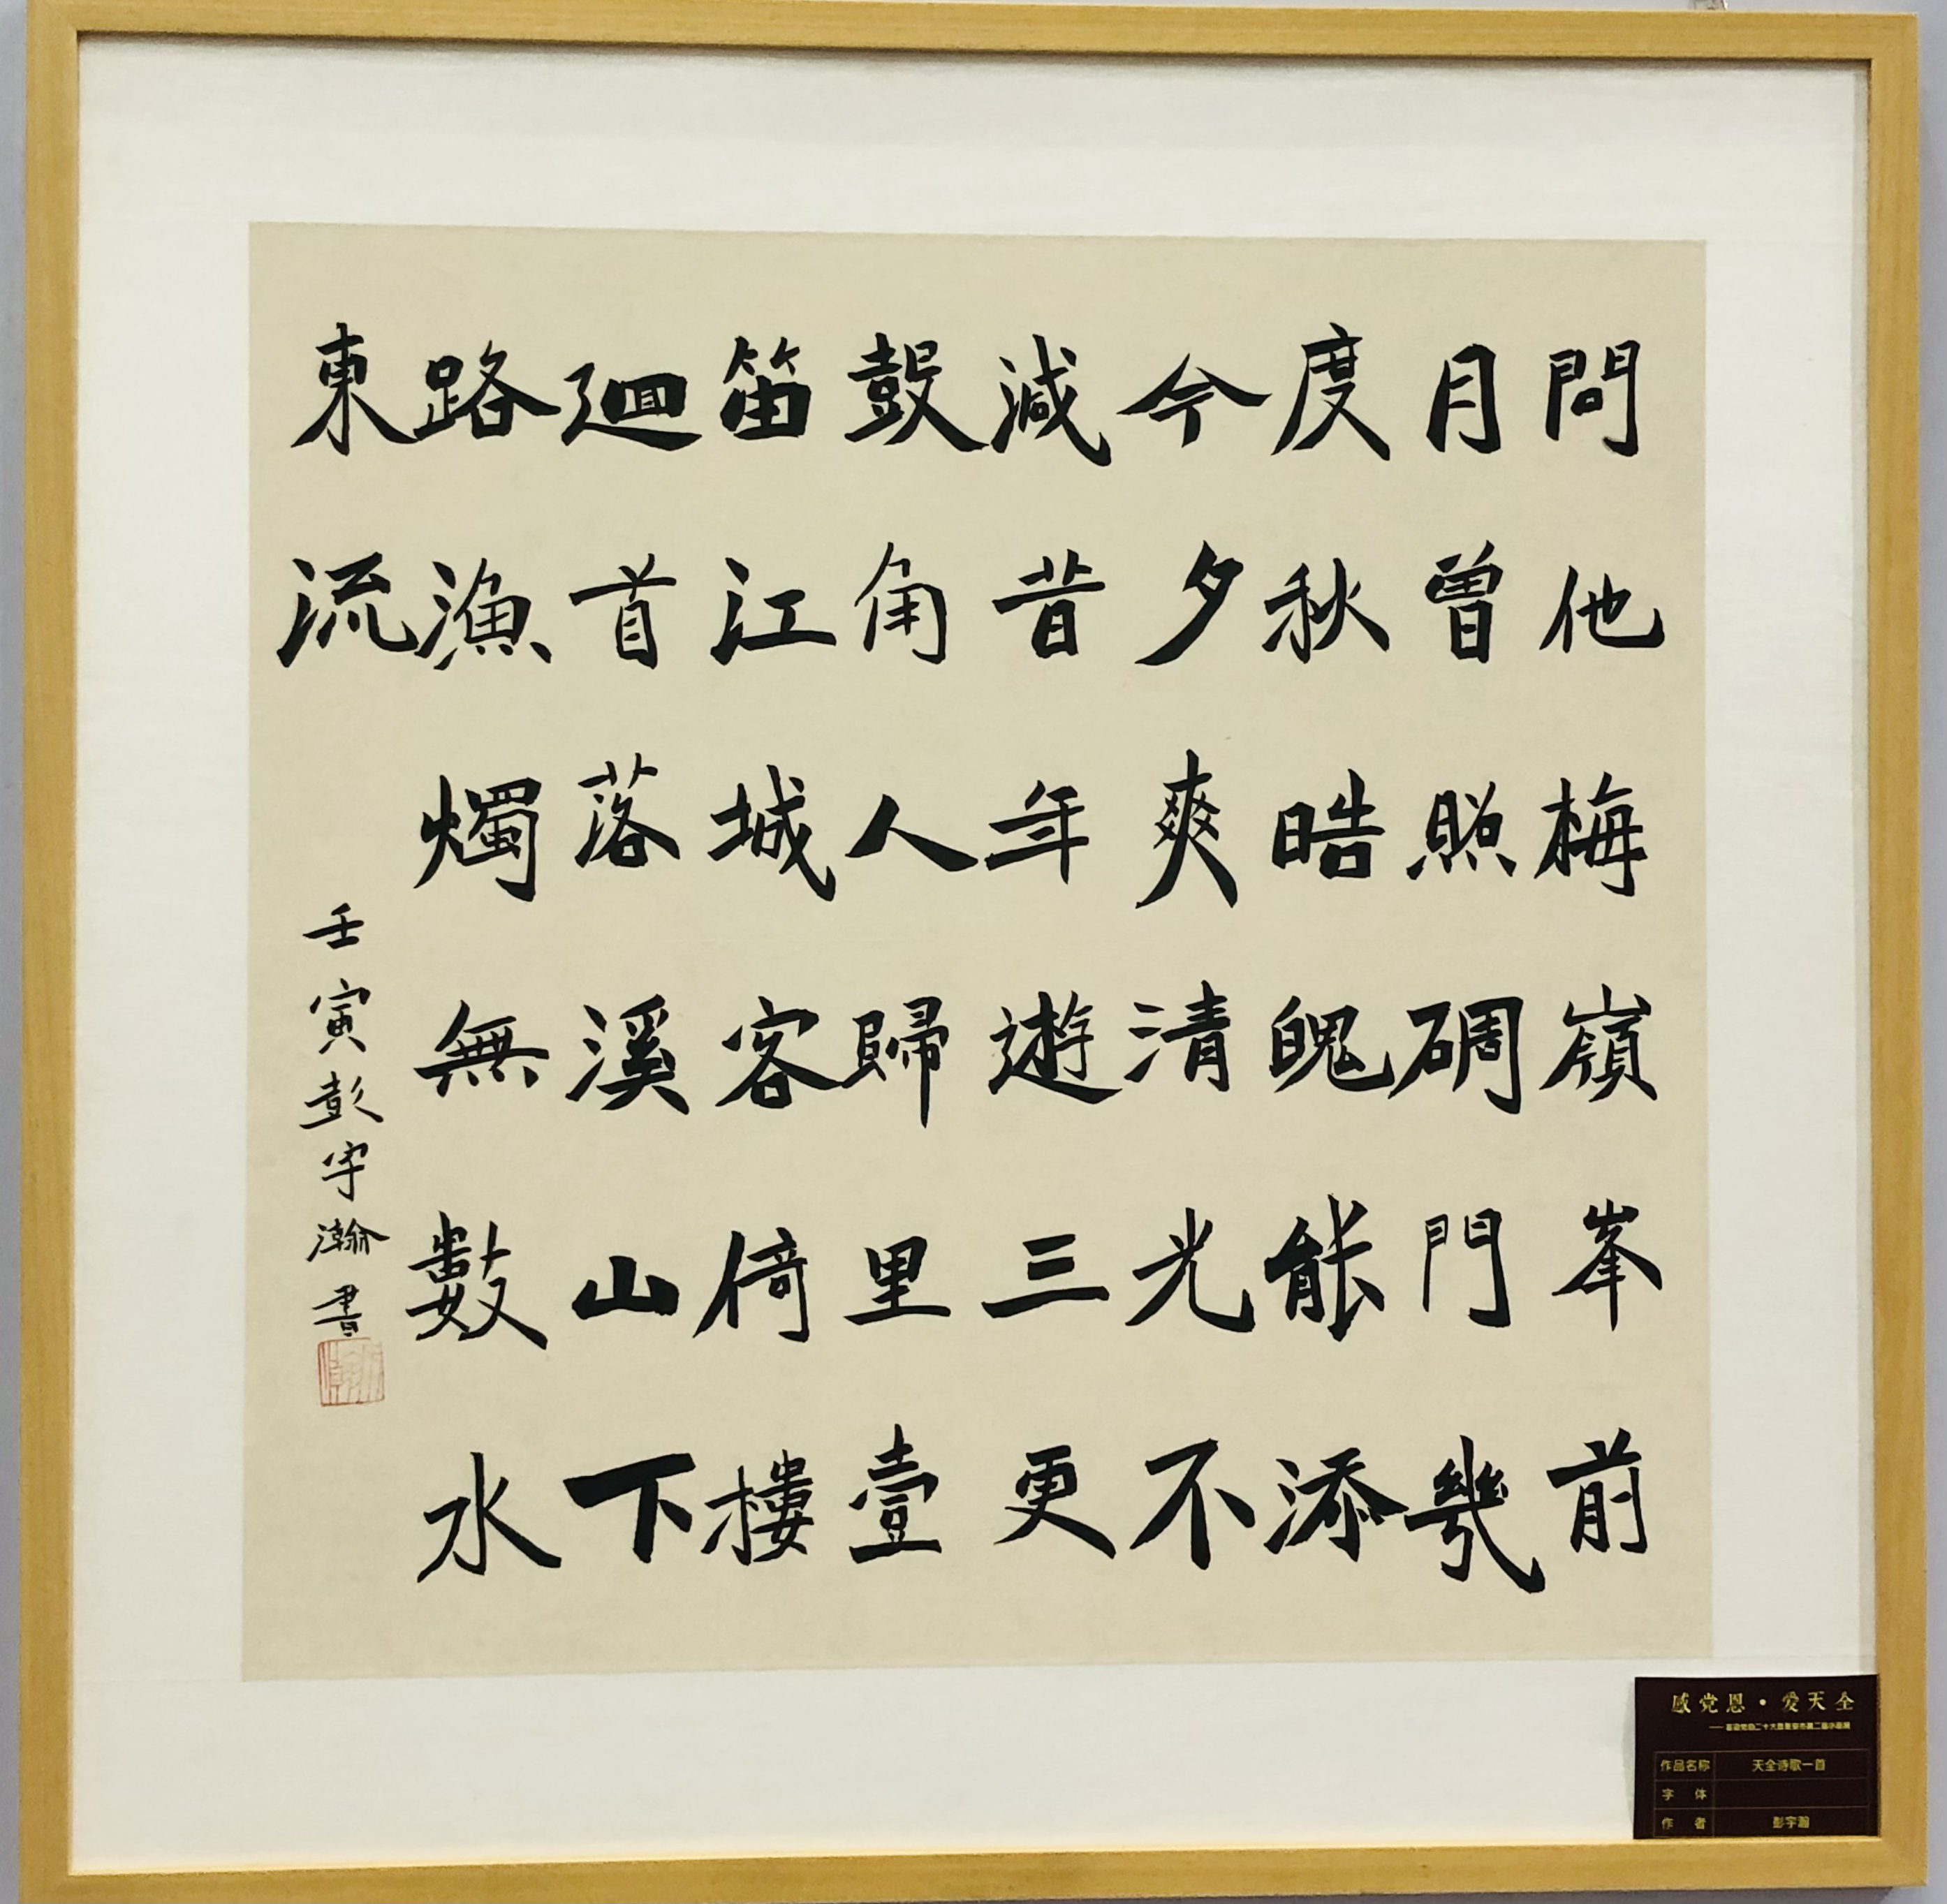 問他梅嶺峯前
月曾照碉門幾
度秋晧魄能添
今夕爽清光不
減昔年遊三更
鼓角人歸里壹
笛江城客倚樓
廻首落溪山下
路漁燭無數水
東流
壬寅彭宇瀚書
感党恩·爱天全
作品名称 天全诗歌一首
字 体
作 者 彭宇瀚